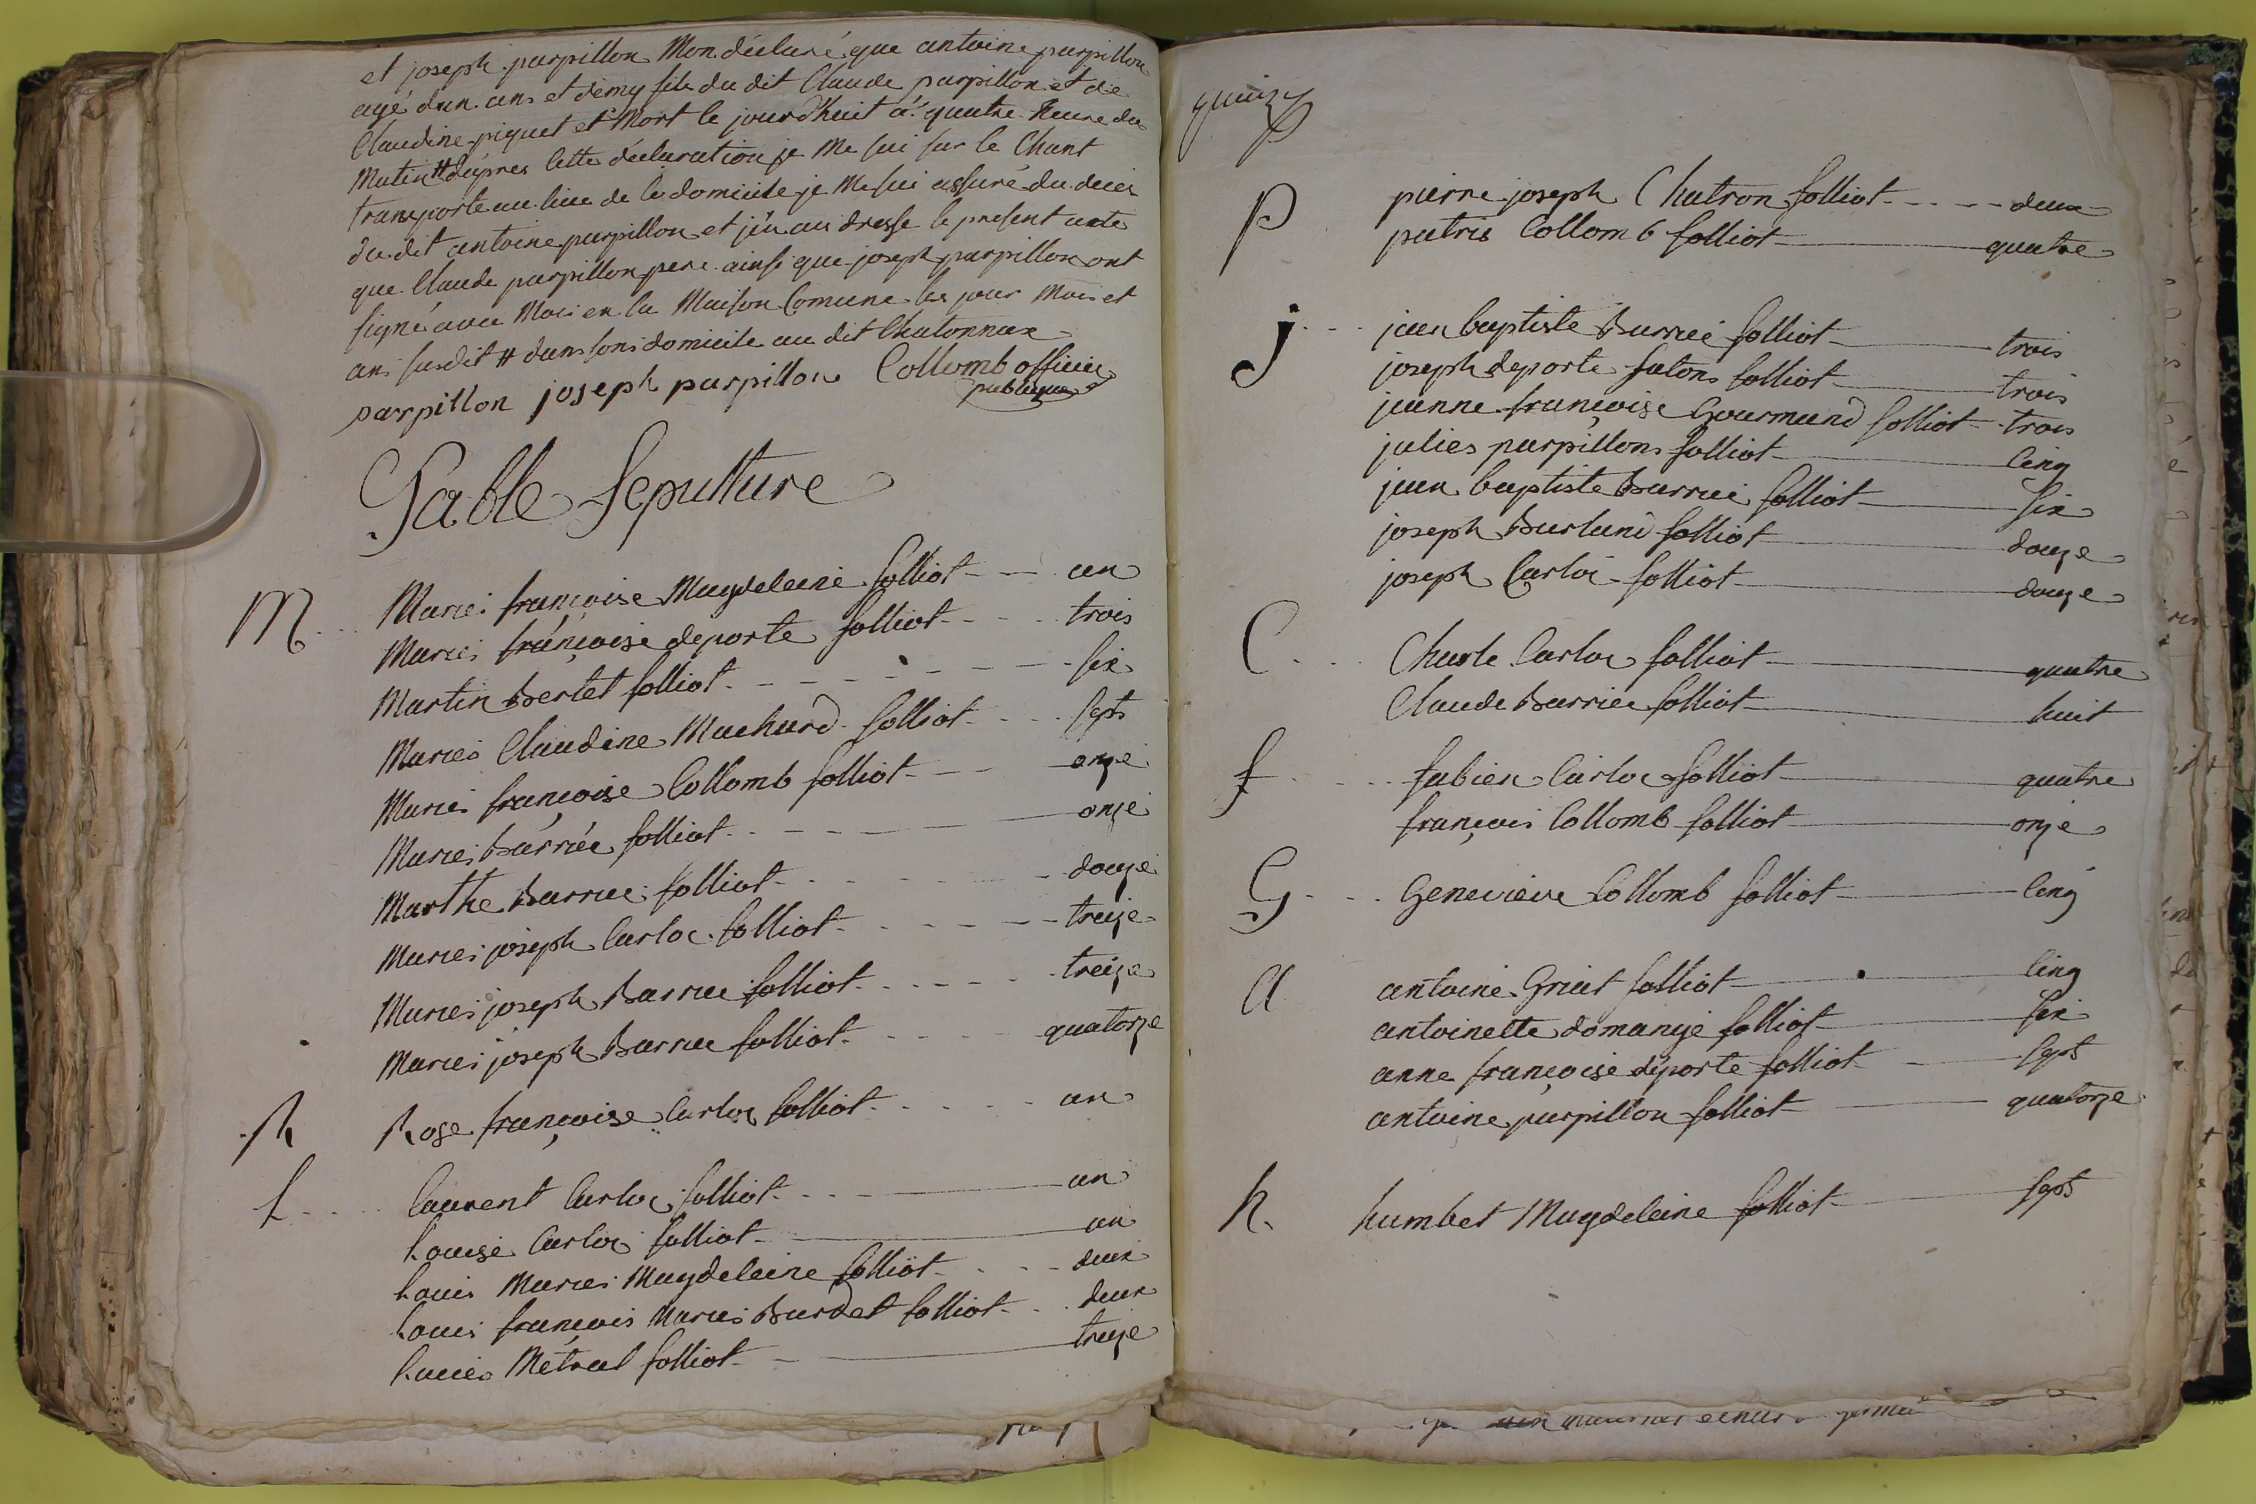 et joseph parpillon Mon déclaré que antoine parpillon
agé dun ans et demy fils du dit Claude parpillon et de
Claudine piquet est Mort le jourdhuit á quatre heure du
Matin # dépres cette déclaration je Me sui sur le Chant
transporte au lieu de le domicile je Me sui assuré du decei
du dit antoine parpillon et jéu au dresse le present acte
que Claude parpillon pere ainsi que joseph parpillon ont
signé avec Moi en la Maison Comune les jour Mois et
ans susdit # dans sons domicile au dit Chatonnax
parpillon joseph parpillon Collomb officier
publique
Table Sepulture
M Maries françoise Magdeleine folliot un
Maries françoise deporte folliot trois
Martin Bertet folliot six
Maries Claudine Machard folliot sept
Maries françoise Collomb folliot onze
Maries Barrée folliot onze
Marthe Barrue folliot douze
Maries joseph Carloz folliot treize
Maries joseph Barrue folliot treize
Maries joseph Barrue folliot quatorze
R Rose françoise Carloz folliot un
L Laurent Carloz folliot un
Louise Carloz folliot un
Louis Maries Magdeleine folliot deux
Louis françois Maries Burdet folliot deux
Louies Métral folliot treize
quinze
P pierre joseph Chatron folliot deux
patris Collomb folliot quatre
J jean baptiste Barrué folliot trois
joseph deporte folliot trois
jeanne françoise Gourmand folliot trois
julies parpillons folliot Cinq
jean baptiste Barrué folliot six
joseph Burland folliot douze
joseph Carloz folliot douze
C Charle Carloz folliot quatre
Claude Barrue folliot huit
f fabien Carloz folliot quatre
françois Collomb folliot onze
G Genevieve Collomb folliot Cinq
a antoine Griat folliot Cinq
antoinette domange folliot six
anne françoise déporte folliot sept
antoine parpillon folliot quatorze
h humbet Magdeleine folliot sept